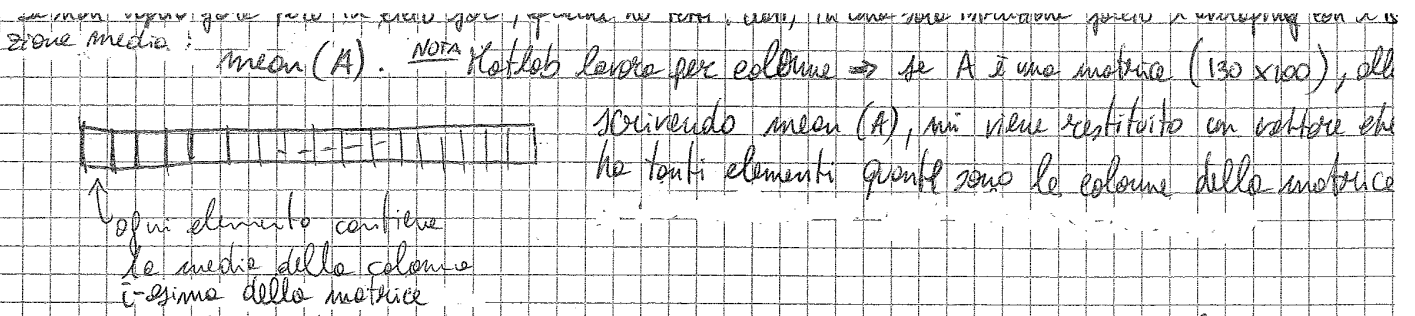 zione media :
mean (A). NOTA Matlab lavora per colonne ⇒ se A è una matrice (130 x100), all
scrivendo mean (A), mi viene restituito un vettore che
ha tanti elementi quante sono le colonne della matrice
ogni elemento contiene
la media della colonna
i-esima della matrice